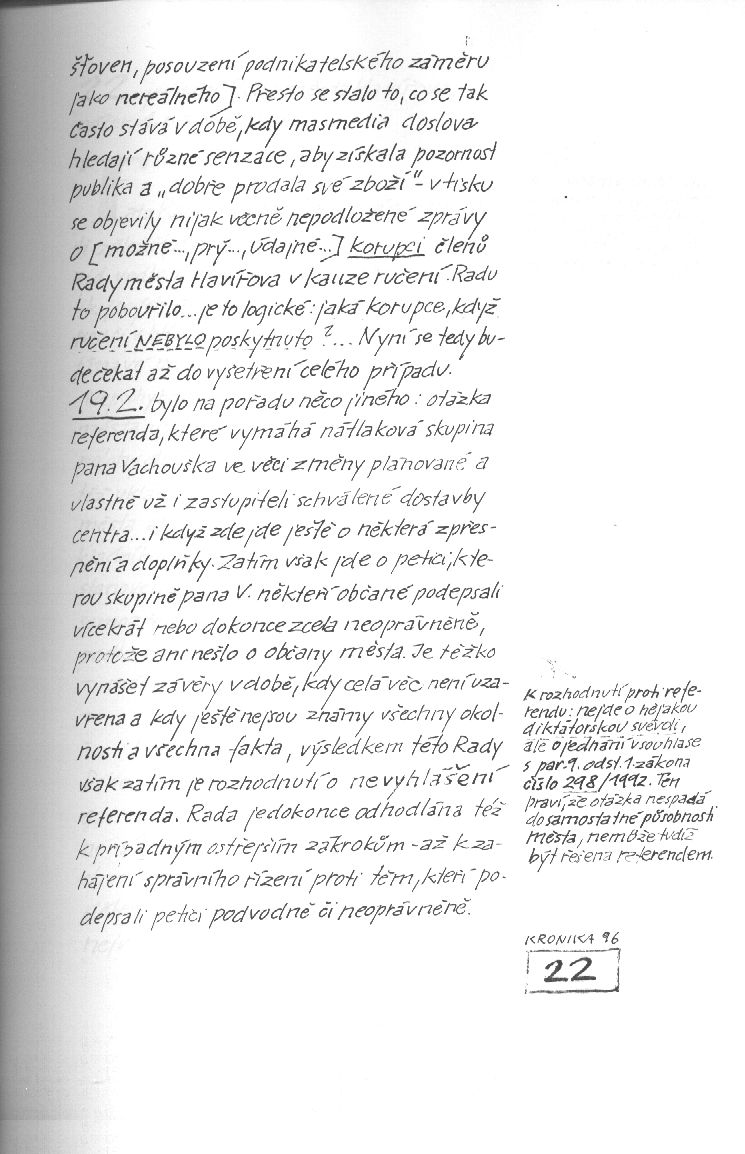 šťoven, posouzení podnikatelského záměru
jako nereálného]. Přesto se stalo to, co se tak
často stává v době, kdy masmedia doslova
hledají různé senzace, aby získala pozornost
publika a „dobře prodala své zboží" - v tisku
se objevily nijak věcně nepodložené zprávy
o [možné..., prý..., údajné...] korupci členů
Rady města Havířova v kauze ručení. Radu
to pobouřilo... je to logické: jaká korupce, když
ručení NEBYLO poskytnuto?... Nyní se tedy bu-
de čekat až do vyšetření celého případu.
19.2. bylo na pořadu něco jiného: otázka
referenda, které vymáhá nátlaková skupina
pana Vachouška ve věci změny plánované a
vlastně už i zastupiteli schválené dostavby
centra... i když zde jde ještě o některá zpřes-
nění a doplňky. Zatím však jde o petici, kte-
rou skupině pana V. někteří občané podepsali
vícekrát nebo dokonce zcela neoprávněně,
protože ani nešlo o občany města. Je těžko
vynášet závěry v době, kdy celá věc není uza-
vřena a kdy ještě nejsou známy všechny okol-
nosti a všechna fakta, výsledkem této Rady
však zatím je rozhodnutí o nevyhlášení
referenda. Rada je dokonce odhodlána též
k případným ostřejším zákrokům - až k za-
hájení správního řízení proti těm, kteří po-
depsali petici podvodně či neoprávněně.
K rozhodnutí proti refe-
rendu: nejde o nějakou
diktátorskou svévoli,
ale o jednání v souhlase
s par. 9. odst. 1. zákona
číslo 298/1992. Ten
praví, že otázka nespadá
do samostatné působnosti
města, nemůže tudíž
být řešena referendem.
KRONIKA 96
22